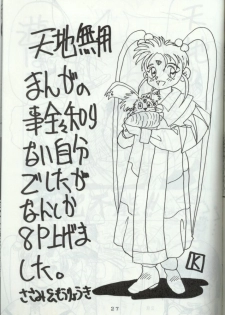 天地無用
まんがの
事全々知
ない自分
でしたが
なんとか
8P上げま
した。
ささみ&むりょうき
K
27